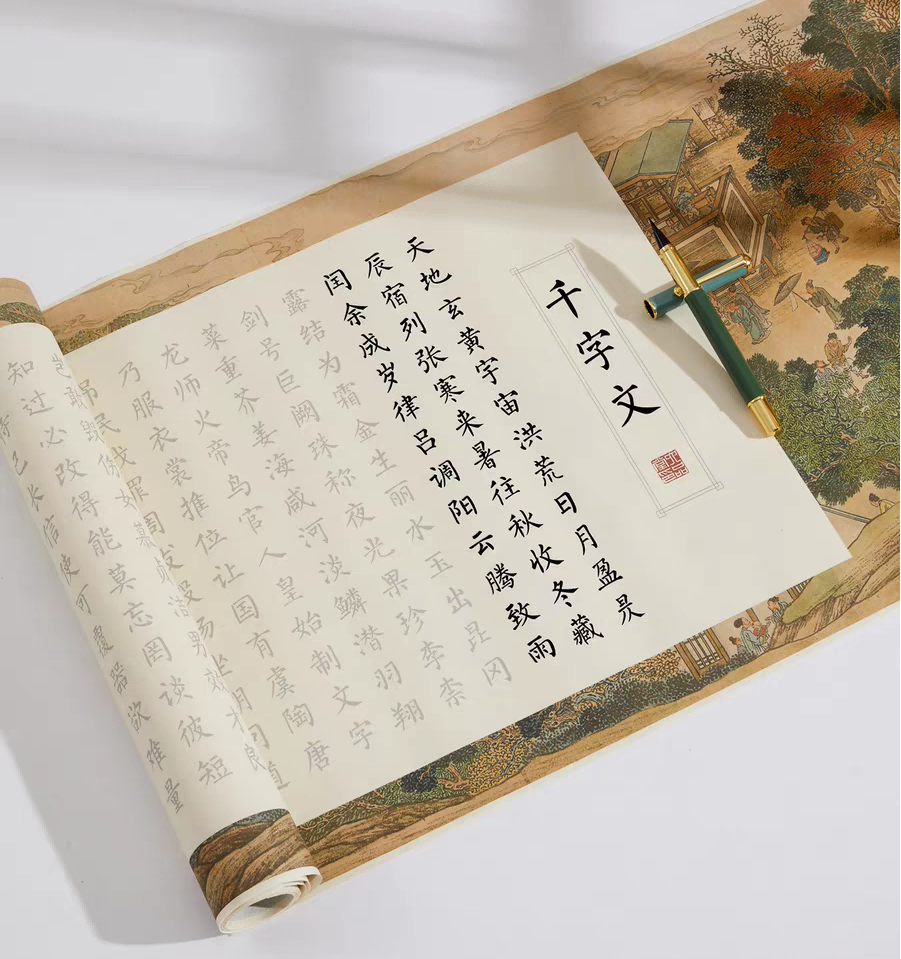 千字文
天地玄黄宇宙洪荒日月盈昃
辰宿列张寒来暑往秋收冬藏
闰余成岁律吕调阳云腾致雨
露结为霜金生丽水玉出昆冈
剑号巨阙珠称夜光果珍李柰
菜重芥姜海咸河淡鳞潜羽翔
龙师火帝鸟官人皇始制文字
乃服衣裳推位让国有虞陶唐
民伐罪周道
知过必改得能莫忘罔谈彼短
己长信使可覆器欲难量